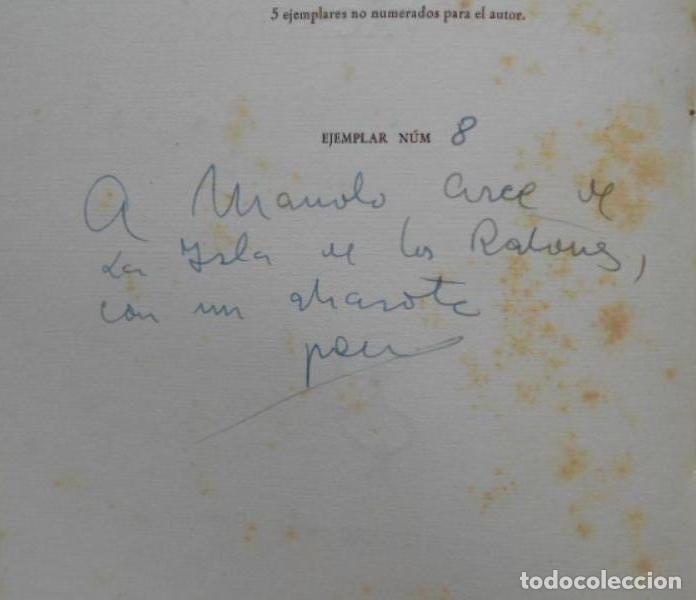 5 ejemplares no numerados para el autor.
EJEMPLAR NÚM 8
A Manolo Arce de
La Isla de los Ratones,
con un
todocoleccion